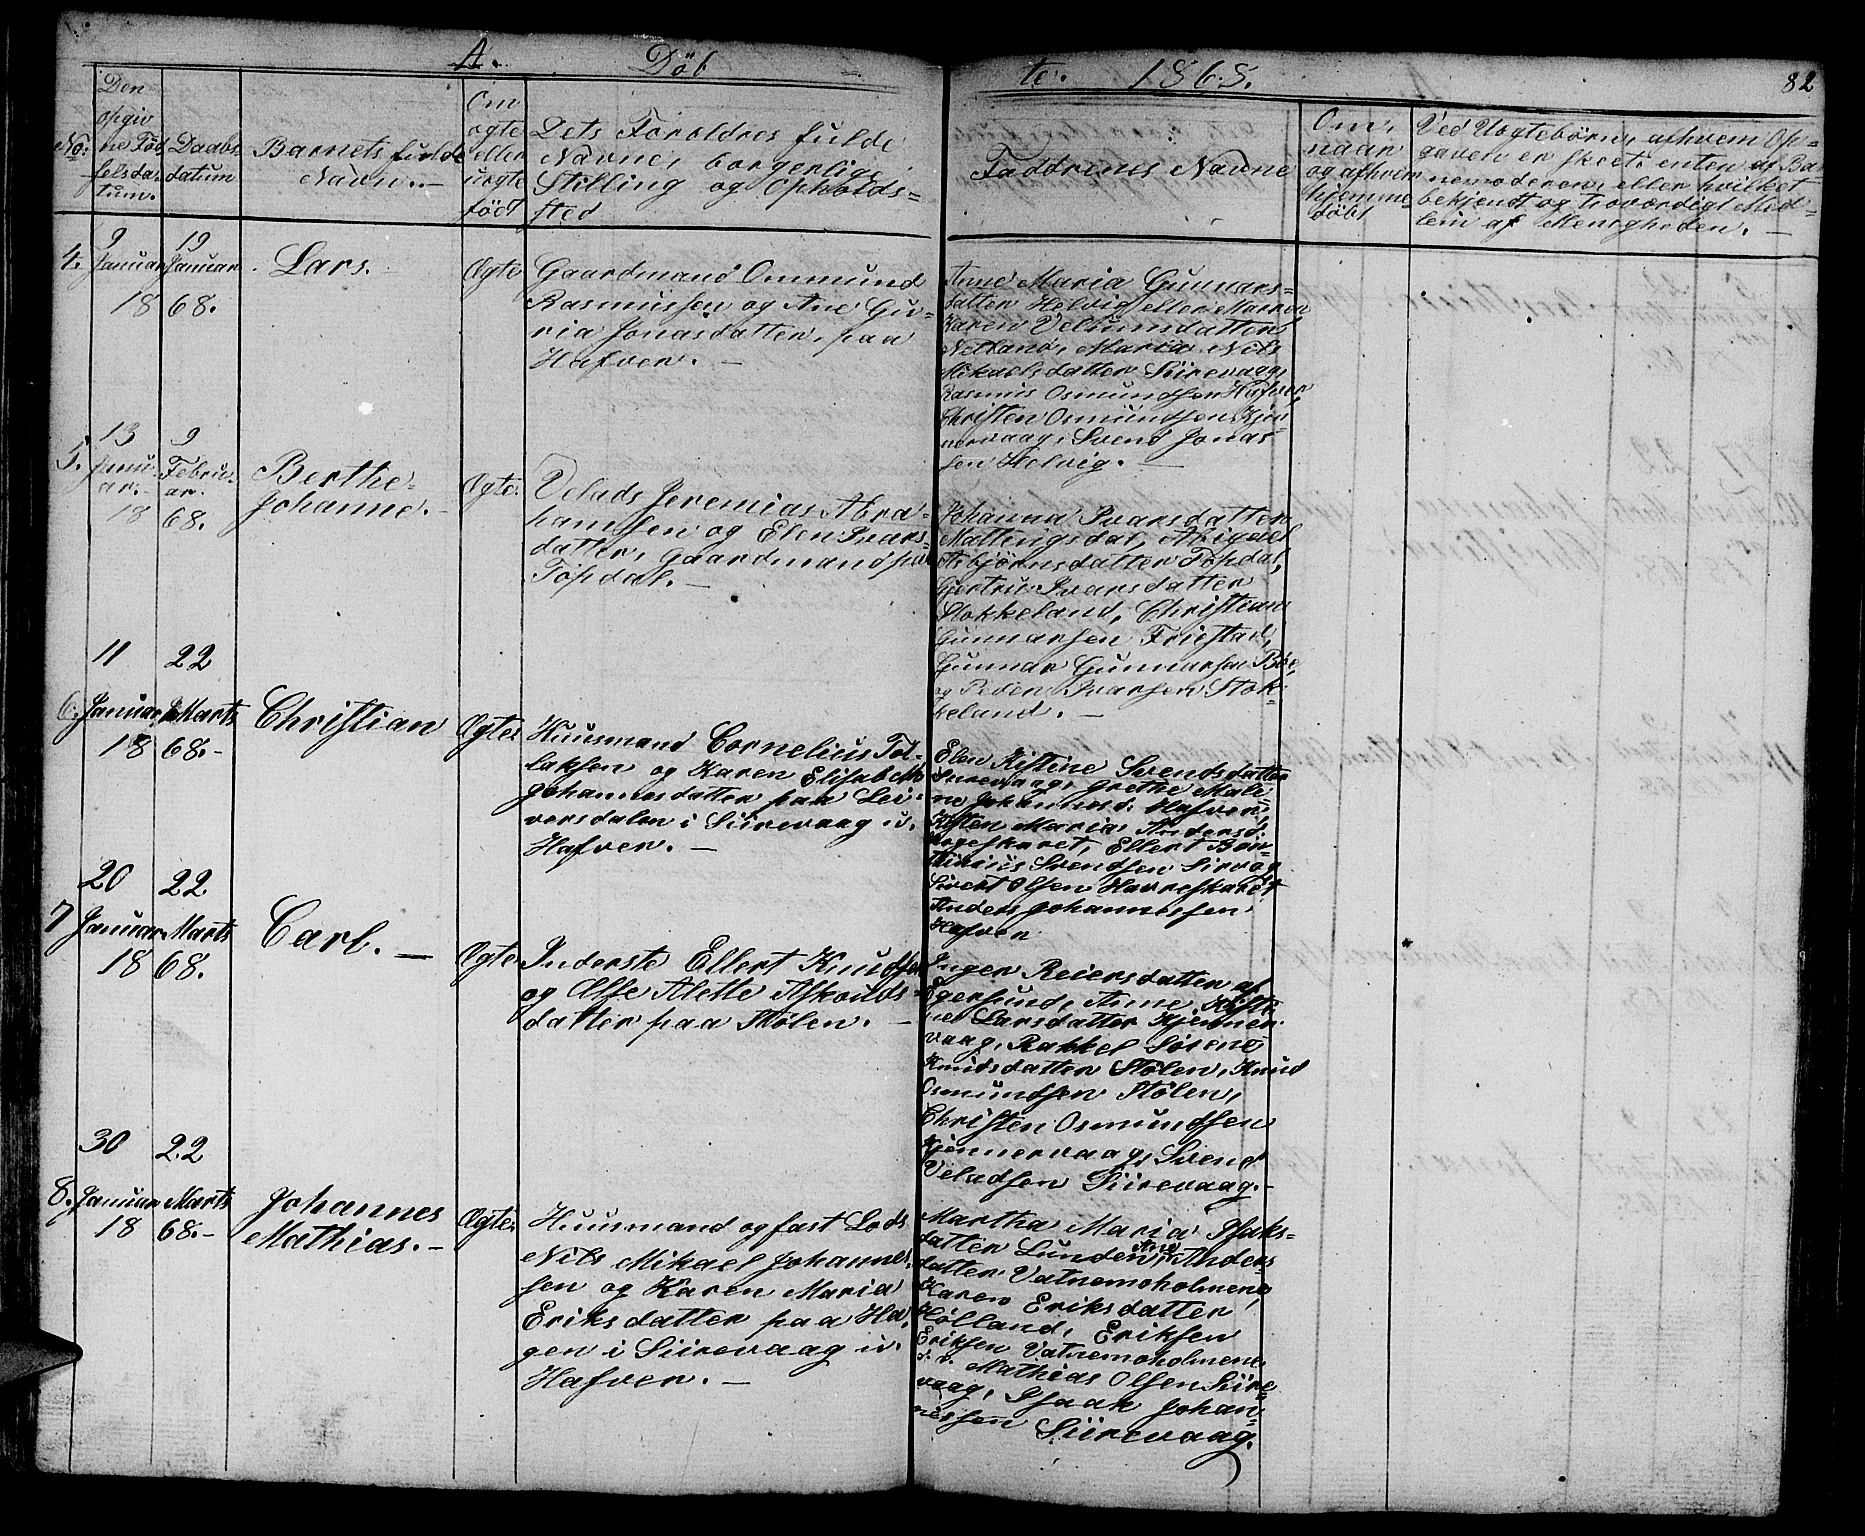 A. Döbte. 1868.
82
No.
Den
opgiv
ne Föd
selsda-
tum.
Daabs-
datum
Barnets fulde
Navn.-
Om
ægte
eller
uægte
født
Dets Foreldres fulde
Navne, borgerlige
Stilling og Opholds=
sted
Faddrenes Navne
Om,
naar
og af hvem
hjemme=
døbt
Ved Uægtebørn, af hvem Op=
gaven er skeet; enten af Bar
nemoderen, eller hvilket
bekjendt og troværdigt Med=
lem af Menigheden. -
4.
9
Januar
19
Januar
1868.
Lars.
Ægte
Gaardmand Ommund
Rasmussen og Ane Gu=
ria Jonasdatter, paa
Hafver. -
Anne Maria Gunnars=
datter Helvig eller
Karen Velumsdatter
Netland, Maria Nils
Mikaelsdatter Siirevaag,
Rasmus Osmundsen Hafver,
Christen Osmundsen Kjen
nervaag, Svend Jonas
sen Helvig. -
5.
13
Janu-
ar.-
9
Febru-
ar.
1868.
Berthe=
Johanne. -
Ægte.
Velads Jeremias Abra=
hamsen og Elen Ivars=
datter, gaardmand paa
Topdal. -
Johanna Ivarsdatter
Mattingsdal, Abigael
Asbjørnsdatter Topdal,
Gjertrue Ivarsdatter
Stokkeland, Christian
Gunnarsen Friestad,
Gunnar Gunnarsen Bøe,
og Peder Ivarsen Stok=
keland. -
6.
11
Januar
22
Marts
1868.-
Christian
Ægte.
Huusmand Cornelius Tol-
laksen og Karen Elisabeth
Johannesdatter paa Lei-
versdalen i Siirevaag u.
Hafver. -
Elen Kistine Svendsdatter
Siirevaag, Grethe Male
ne Johannesd. Hafver,
Kisten Maria Andersd.
Ellert Ben-
Svendsen Sirvag
Sivert Olsen Havreskaret
Anders Johannessen,
Hafver
7
20
Januar
22
Marts
1868.
Carl. -
Ægte
Inderste Ellert Knudsen
og Else Alette Askouds=
datter paa Stølen. -
Inger Reiersdatter af
Egersund, Anne Kisti
ne Larsdatter Kjenner
vaag, Rakkel Sørene
Knudsdatter Stølen, Knud
Osmundsen Stølen,
Christen Osmundsen
Kjennervaag, Svend
Veladsen Siirevaag.-
8.
30
Januar
22
Marts
1868.-
Johannes
Mathias. -
Ægte.
Huusmand og fast Lods
Nils Mikael Johannes
sen og Karen Maria
Eriksdatter paa Ha-
gen i Siirevaag u.
Hafver. -
Martha Maria Isaks=
datter Lunden, Ane Anders
datter Vatnemoholmene,
Karen Eriksdatter
Hølland, Eriksen
Eriksen Vatnemoholmene
Mathias Olsen Siire
vaag, Isaak Johan=
nessen Siirevaag.